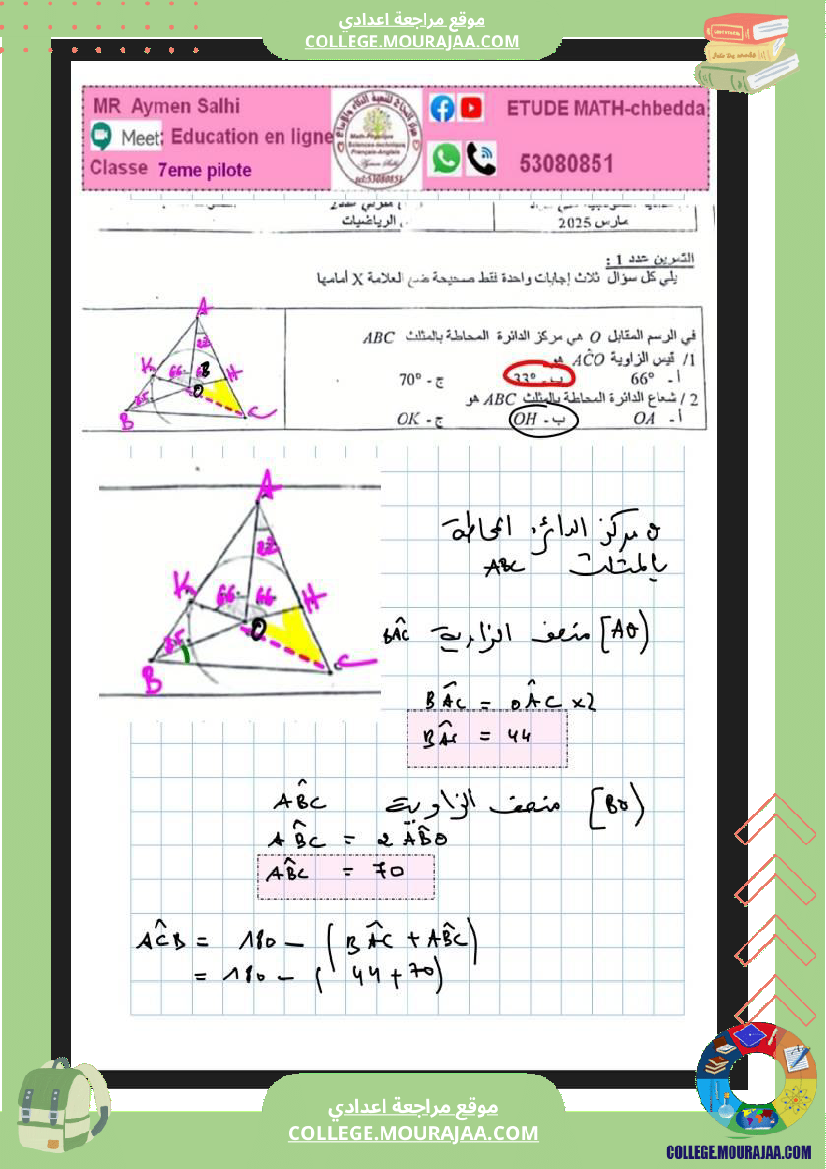 موقع مراجعة اعدادي
COLLEGE.MOURAJAA.COM
MR Aymen Salhi
Meet: Education en ligne
Classe 7eme pilote
ETUDE MATH-chbedda
53080851
Math-Physique
Sciences-technique
Français-Anglais
Aymen Salhi
tel:53080851
الرياضيات
مارس 2025
التمرين عدد 1 :
يلي كل سؤال ثلاث إجابات واحدة فقط صحيحة ضع العلامة X أمامها
في الرسم المقابل O هي مركز الدائرة المحاطة بالمثلث ABC
1/ قيس الزاوية AĈO هو
أ - 66° ب - 33° ج - 70°
2 / شعاع الدائرة المحاطة بالمثلث ABC هو
أ - OA ب - OH ج - OK
A
K
66
H
O
B
C
A
22
K
66
66
H
O
35
B
C
O مركز الدائرة المحاطة
بالمثلث ABC
[AO) منصف الزاوية BÂC
BÂC = OÂC ×2
BÂC = 44
[BO) منصف الزاوية AB̂C
AB̂C = 2 AB̂O
AB̂C = 70
AĈB = 180 - (BÂC + AB̂C)
= 180 - (44+70)
موقع مراجعة اعدادي
COLLEGE.MOURAJAA.COM
COLLEGE.MOURAJAA.COM